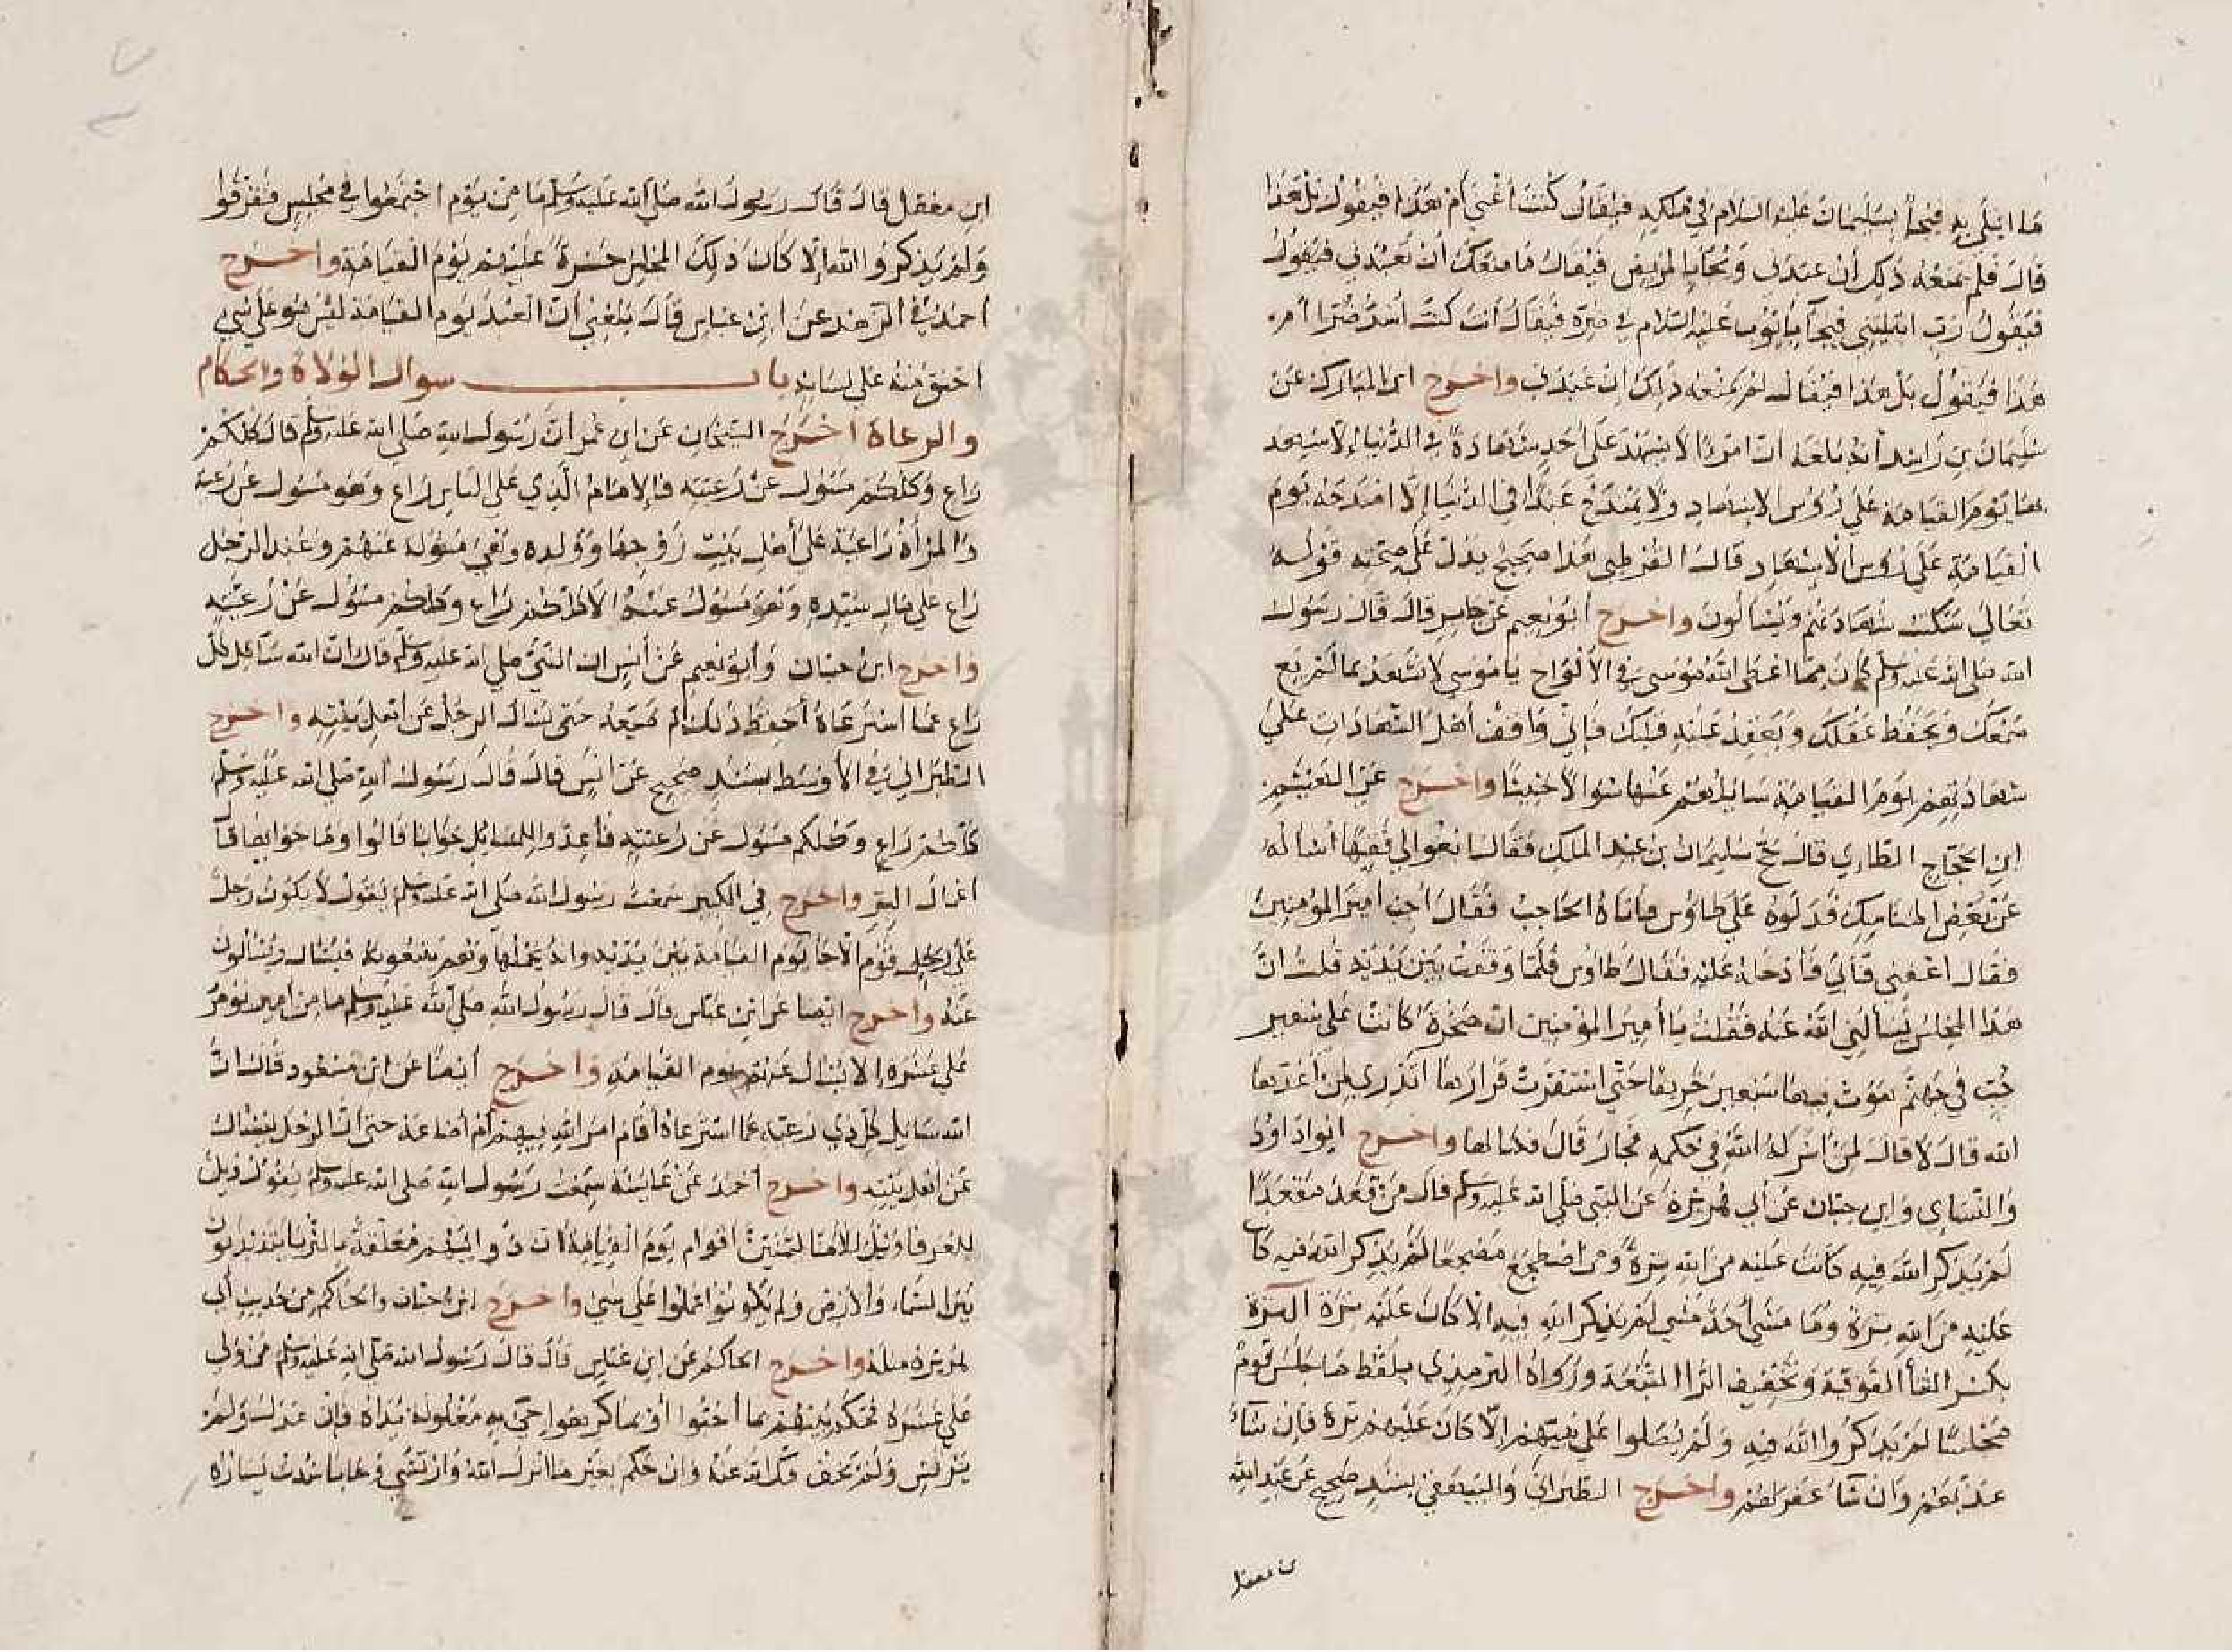 ما ابتلى به فيجأ بسليمان عليه السلام في ملكه فيقال كنت أغنى أم هذا فيقول بل هذا
قال فلم يمنعه ذلك أن عبدني ويجاء بالمريض فيقال ما منعك أن تعبدني فيقول
فيقول رب ابتليتني فيجآ بأيوب عليه السلام في ضره فيقال أنت كنت أشد ضرا أم
هذا فيقول بل هذا فيقال لم يمنعه ذلك ان عبدني واخرج ابن المبارك عن
سليمان بن راشد أنه بلغه ان امرءا لا يشهد على أحد شهادة في الدنيا إلا شهد
بها يوم القيامة على رؤس الاشهاد ولا يمتدح عبدا في الدنيا إلا امتدحه يوم
القيامة على رؤس الاشهاد قال القرطبي هذا صحيح يدل على صحته قوله
تعالى ستكتب شهادتهم ويسألون واخرج أبو نعيم عن جابر قال قال رسول
الله صلى الله عليه وسلم كان مما اعطى الله موسى في الألواح يا موسى لا تشهد بما لم يع
سمعك ويحفظ عقلك ويعقد عليه قلبك فإني واقف أهل الشهادات على
شهادتهم يوم القيامة سائلهم عنها سوالا حثيثا واخرج عن الهيثم
ابن الحجاج الطاري قال حج سليمان بن عبد الملك فقال ابغوا لي فقيها أسأله
عن بعض المناسك فدلوه على طاوس فأتاه الحاجب فقال أجب أمير المؤمنين
فقال اعفني فأبى فأدخله عليه فقال طاوس فلما وقفت بين يديه قلت ان
هذا المجلس يسألني الله عنه فقلت يا أمير المؤمنين ان صخرة كانت على شفير
جب في جهنم هوت فيها سبعين خريفا حتى استقرت قرارها أتدري لمن أعدها
الله قال لا قال لمن أشركه الله في حكمه فجار قال فبكا لها واخرج ابو داود
والنساي وابن حبان عن أبي هريرة عن النبي صلى الله عليه وسلم قال من قعد مقعدا
لم يذكر الله فيه كانت عليه من الله ترة ومن اضطجع مضجعا لم يذكر الله فيه كانت
عليه من الله ترة وما مشى أحد ممشى لم يذكر الله فيه الا كان عليه ترة الترة
بكسر التأ الفوقية وتخفيف الرا التبعة ورواه الترمذي بلفظ ما جلس قوم
مجلسا لم يذكروا الله فيه ولم يصلوا على نبيهم إلا كان عليهم ترة فإن شآء
عذبهم وان شاء غفر لهم واخرج الطبراني والبيهقي بسند صحيح عن عبد الله
بن مغفل
ابن مغفل قال قال رسول الله صلى الله عليه وسلم ما من قوم اجتمعوا في مجلس فتفرقوا
ولم يذكروا الله إلا كان ذلك المجلس حسرة عليهم يوم القيامة واخرج
أحمد في الزهد عن ابن عباس قال بلغني أن العبد يوم القيامة ليس هو على شي
أحنق منه على لسانه باب سوال الولاة والحكام
والرعاة اخرج الشيخان عن ابن عمر أن رسول الله صلى الله عليه وسلم قال كلكم
راع وكلكم مسئول عن رعيته فالإمام الذي على الناس راع وهو مسئول عن رعيته
والمرأة راعية على أهل بيت زوجها وولده وهي مسؤلة عنهم وعبد الرجل
راع على مال سيده وهو مسئول عنه ألا كلكم راع وكلكم مسؤل عن رعيته
واخرج ابن حبان وأبو نعيم عن أنس ان النبي صلى الله عليه وسلم قال ان الله سائل كل
راع عما استرعاه أحفظ ذلك أم ضيعه حتى يسأل الرجل عن أهل بيته واخرج
الطبراني في الأوسط بسند صحيح عن انس قال قال رسول الله صلى الله عليه وسلم
كلكم راع وكلكم مسؤل عن رعيته فأعدوا للمسايل جوابا قالوا وما جوابها قال
أعمال البر واخرج في الكبير سمعت رسول الله صلى الله عليه وسلم يقول لا يكون رجل
على قوم الا جا يوم القيامة بين يديه لواء يحملها وهم يتبعونه فيسأل ويسألون
عنه واخرج ايضا عن ابن عباس قال قال رسول الله صلى الله عليه وسلم ما من أمير يؤمر
على عشرة إلا يسأل عنهم يوم القيامة واخرج أيضا عن ابن مسعود قال ان
الله سايل كل ذي رعية عما استرعاه أقام امر الله فيهم أم أضاعه حتى ان الرجل ليسأل
عن أهل بيته واخرج أحمد عن عايشة سمعت رسول الله صلى الله عليه وسلم يقول ويل
للعرفا ويل للأمنا ليتمنين أقوام يوم القيامة ان ذوايبهم معلقة بالثريا يتذبذبون
بين السماء والأرض ولم يكونوا عملوا على شئ واخرج ابن حبان والحاكم من حديث أبي
هريرة مثله واخرج الحاكم عن ابن عباس قال قال رسول الله صلى الله عليه وسلم من ولي
على عشرة فحكم بينهم بما أحبوا أو بما كرهوا جئ به مغلولة يداه فإن عدل ولم
يرتش ولم يحف فك الله عنه وان حكم بغير ما انزل الله وارتشى وحابا شدت يساره